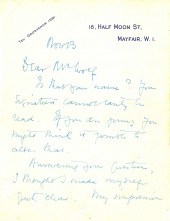 TEL. GROSVENOR 1031
16, HALF MOON ST,
MAYFAIR, W. 1.
Nov 13
Dear Mr
Is that your name? Your
signature cannot easily be
read. If you are young, you
might think it possible to
alter that.
Answering your question,
I thought I made myself
quite clear. My impression